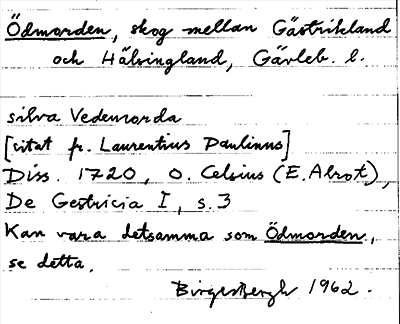 Ödmorden, skog mellan Gästrikland
och Hälsingland, Gävleb. l.
silva Vedemorda
[citat fr. Laurentius Paulinus]
Diss. 1720, O. Celsius (E. Alrot),
De Gestricia I, s. 3
Kan vara detsamma som Ödmorden,
se detta.
Birger Bergh 1962.